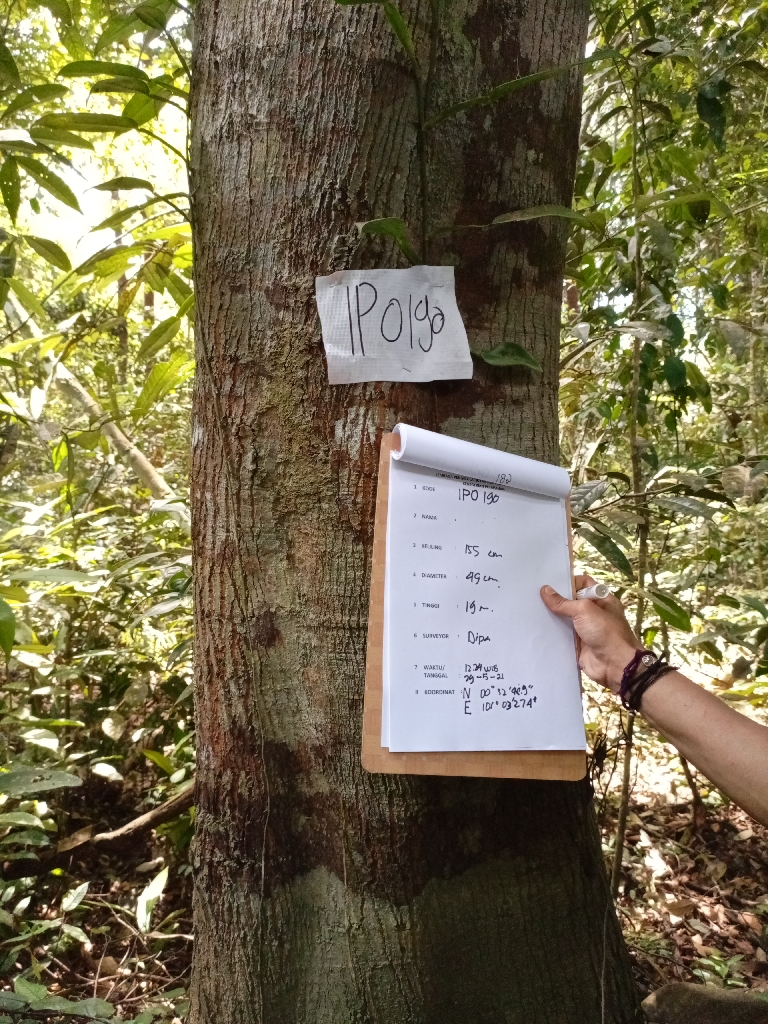 IPO190
182
1 KODE IPO 190
2 NAMA :
3 KELILING : 155 cm
4 DIAMETER : 49 cm
5 TINGGI : 19 m.
6 SURVEYOR : Dipa
7 WAKTU/ TANGGAL : 12.24 WIB
29-5-21
8 KOORDINAT : N 00°
E 101° 03'27.4"